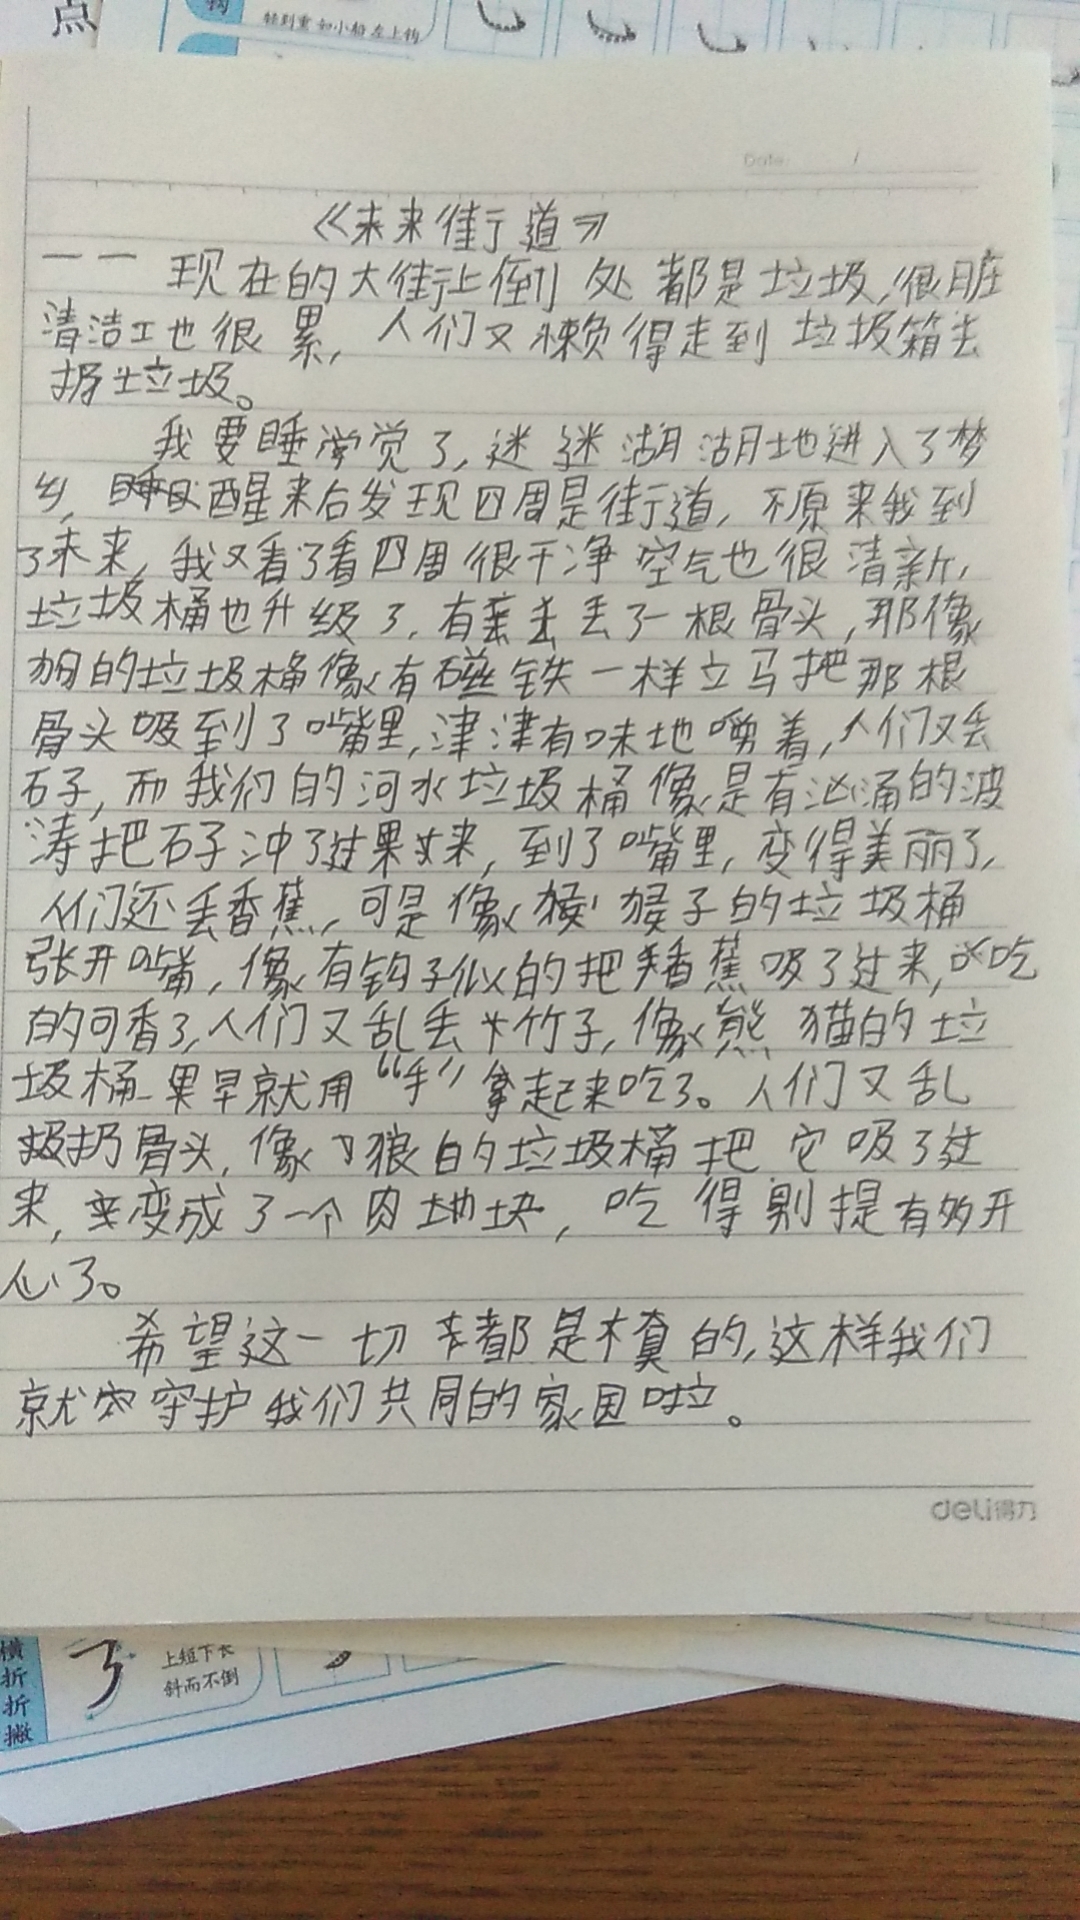 点
钩
转到重 如小船 左上钩
Date: /
《未来街道》
一一 现在的大街上倒处都是垃圾,很脏
清洁工也很累, 人们又懒得走到垃圾箱去
扔垃圾。
我要睡觉了,迷迷湖湖地进入了梦
乡, 醒来后发现四周是街道, 原来我到
了未来, 我又看了看四周很干净空气也很清新,
垃圾桶也升级了, 有丢了一根骨头, 那像
狗的垃圾桶像有磁铁一样立马把那根
骨头吸到了嘴里, 津津有味地嚼着, 人们又丢
石子, 而我们的河水垃圾桶像是有汹涌的波
涛把石子冲了过来, 到了嘴里, 变得美丽了,
人们还丢香蕉, 可是像猴子的垃圾桶
张开嘴, 像有钩子似的把香蕉吸了过来, 吃
的可香了, 人们又乱丢竹子, 像熊猫的垃
圾桶 早就用“手”拿起来吃了。人们又乱
扔骨头, 像狼的垃圾桶把它吸了过
来, 变成了一个肉块, 吃得别提有多开
心了。
希望这一切都是真的, 这样我们
就守护我们共同的家园啦。
deli得力
横折折撇
上短下长
斜而不倒